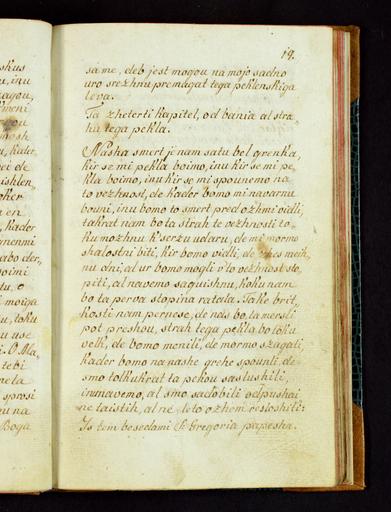 19.
same, deb jest mogou na mojo sadno
uro srezhnu premagat tega peklenskiga
leva.
Ta zheterti kapitel, od bania al stra-
hu tega pekla.
Nasha smert je nam satu bel grenka,
kir se mi pekla boimo, inu kir se mi pe-
kla boimo, inu kir se mi spounemo na
to vezhnost, de kader bomo mi navarnu
bouni, inu bomo to smert pred ozhmi vidli,
takrat nam bo ta strah te vezhnosti to-
ku mozhnu k' serzu udaru, de mi mormo
shalostni biti, kir bomo vidli, de
nu dni, al ur bomo mogli v' to vezhnost sto-
piti, al navemo saguishnu, koku nam
bo ta perva stopina ratala. Take brit-
kosti nam pernese, de nas bo ta mersli
pot preshou, strah tega pekla bo toku
velk, de bomo menili, de mormo szagati,
kader bomo na nashe grehe spounli, de
smo tolkukrat ta pekou saslushili,
inu navemo, al smo sadobili odpushai-
ne taistih, al ne, leto ozhem resloshiti:
Is tem besedami S. Gregoria papesha.
skus
inu
zagou,
kader
de
ushlen,
oker
en
kader
nenmi
abo der,
poimi
tu, o
moiga
toku
use
O. Ma,
tebi
neta
sprosi
na
Boga